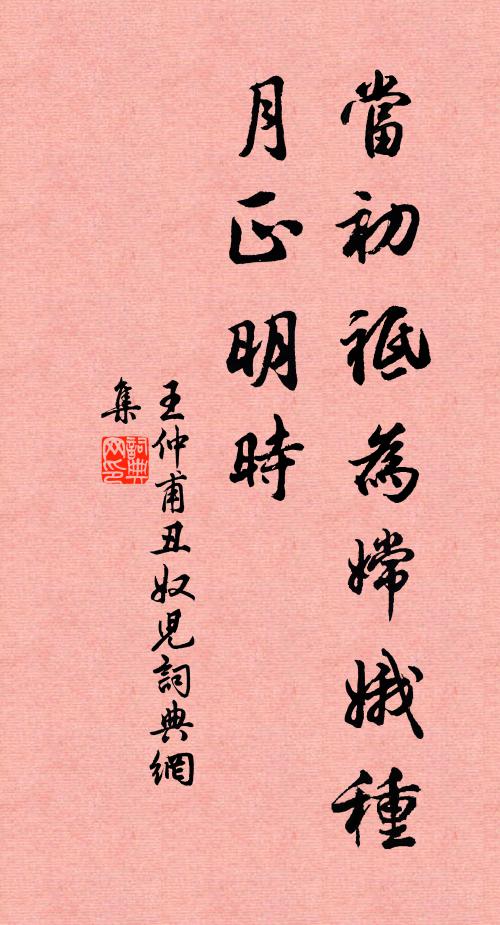 當初祗為嫦娥種
月正明時
王仲甫丑奴兒詞典網
集
詞典
网印